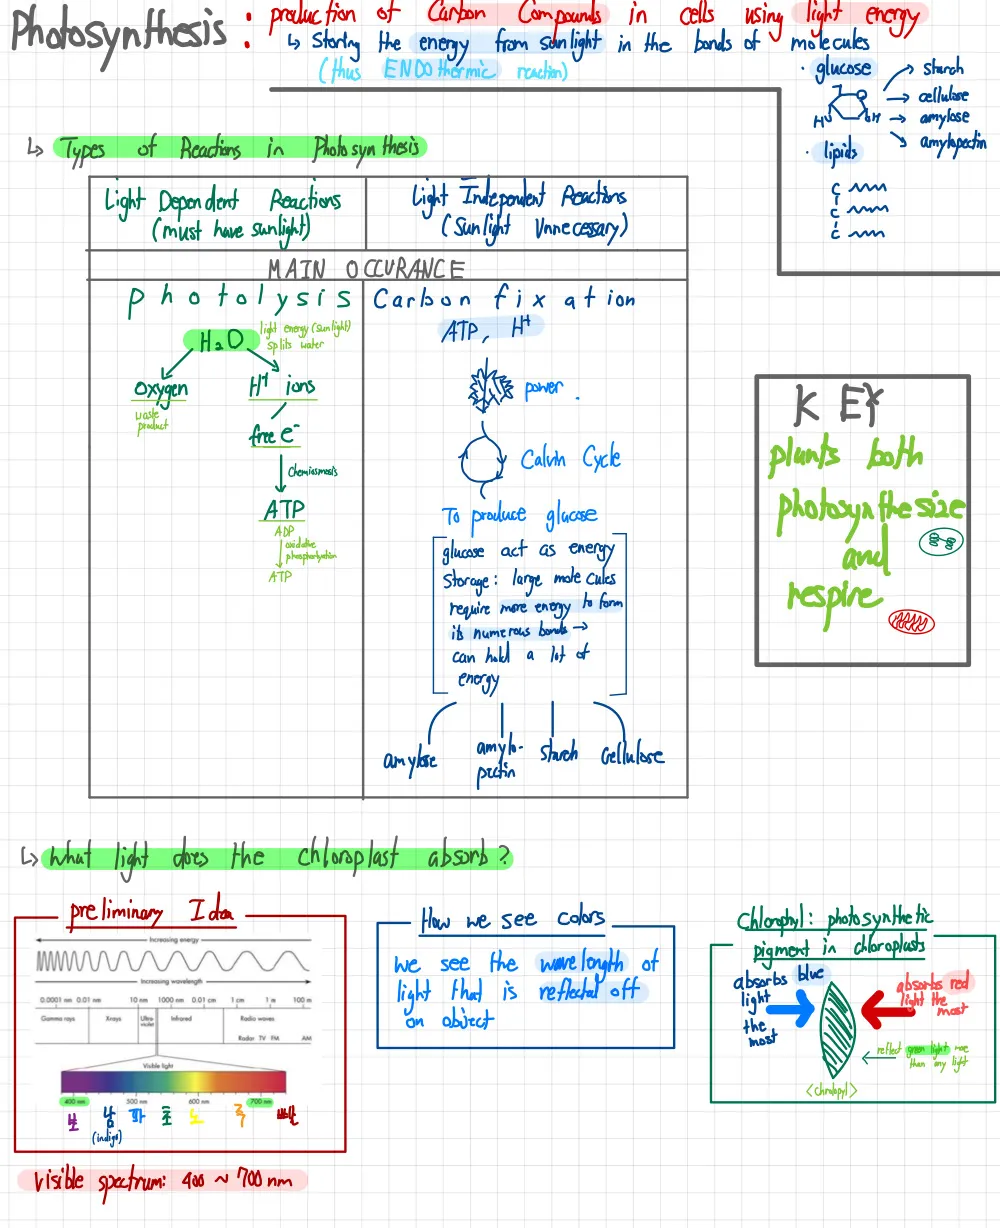 Photosynthesis : production of Carbon Compounds in cells using light energy
↳ Storing the energy from sunlight in the bonds of molecules
(thus ENDOthermic reaction)
· glucose
→ starch
→ cellulose
→ amylose
→ amylopectin
HO
OH
· lipids
C
C
C
↳ Types of Reactions in Photosynthesis
Light Dependent Reactions
(must have sunlight)
Light Independent Reactions
(Sunlight Unnecessary)
MAIN OCCURANCE
photolysis
H2O
light energy (sunlight)
splits water
oxygen
waste
product
H+ ions
free e-
chemiosmosis
ATP
ADP
oxidative
phosphorylation
ATP
Carbon fixation
ATP, H+
power.
Calvin Cycle
To produce glucose
glucose act as energy
storage: large molecules
require more energy to form
its numerous bonds →
can hold a lot of
energy
amylose
amylo-
pectin
starch
Cellulose
KEY
plants both
photosynthesize
and
respire
↳ What light does the chloroplast absorb?
preliminary Idea
Increasing energy
Increasing wavelength
0.0001 nm 0.01 nm 10 nm 1000 nm 0.01 cm 1 cm 1 m 100 m
Gamma rays X-rays Ultra-violet Infrared Radio waves
Radar TV FM AM
Visible light
400 nm 500 nm 600 nm 700 nm
보 남 파 초 노 주 빨
(indigo)
visible spectrum: 400 ~ 700 nm
How we see colors
we see the wavelength of
light that is reflected off
on object
Chlorophyl: photosynthetic
pigment in chloroplasts
absorbs blue
light
the
most
absorbs red
light the
most
reflect green light more
than any light